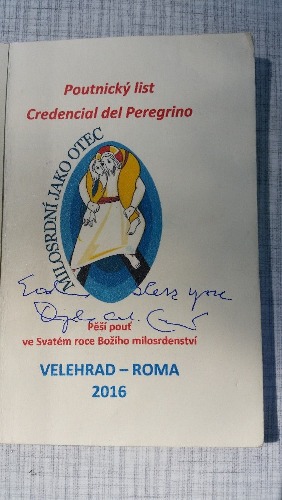 Poutnický list
Credencial del Peregrino
MILOSRDNÍ JAKO OTEC
bless you
Pěší pouť
ve Svatém roce Božího milosrdenství
VELEHRAD – ROMA
2016